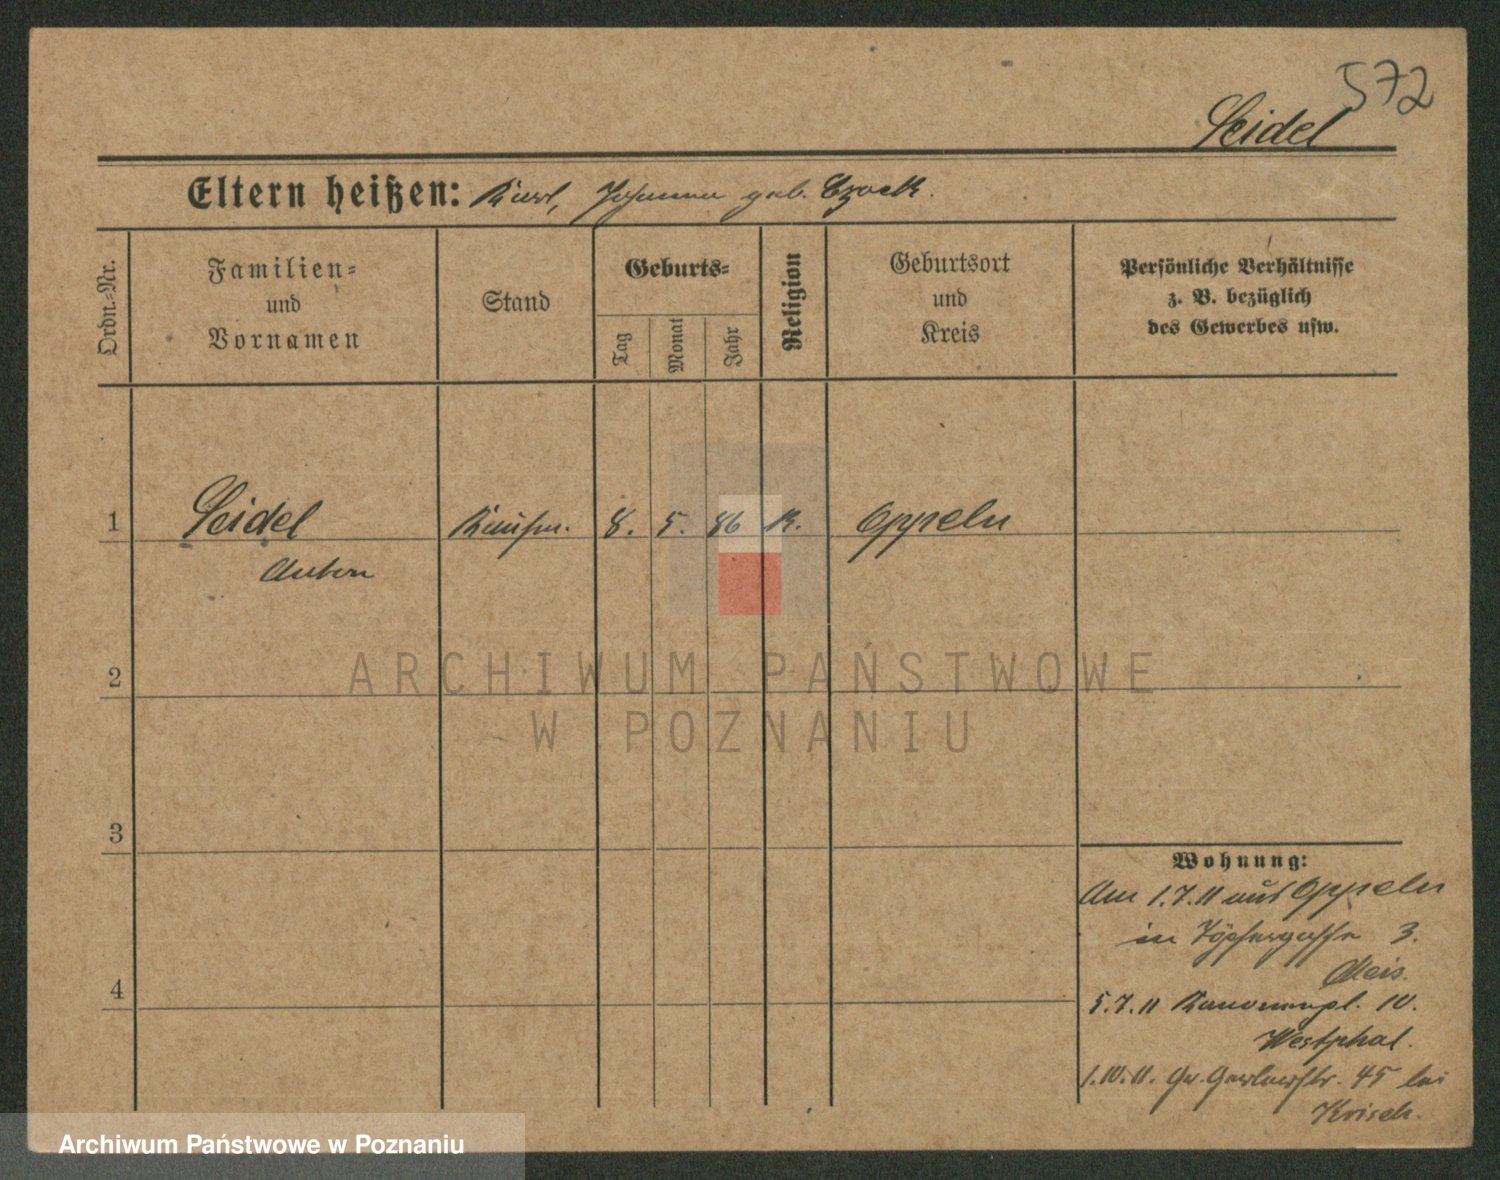 572
Seidel
Eltern heißen: Karl, Johanna geb. Czock.
Ordn.-Nr.
Familien-
und
Vornamen
Stand
Geburts-
Tag
Monat
Jahr
Religion
Geburtsort
und
Kreis
Persönliche Verhältnisse
z. B. bezüglich
des Gewerbes usw.
1 Seidel Kaufm. 8. 5. 86 K. Oppeln
Anton
2
3
4
Wohnung:
Am 1.7.11 aus Oppeln
in Töpfergasse 3.
5.7.11 Kanonenpl. 10.
Westphal.
1.10.11. Gr. Gerberstr. 45 bei
ARCHIWUM PAŃSTWOWE
W POZNANIU
Archiwum Państwowe w Poznaniu